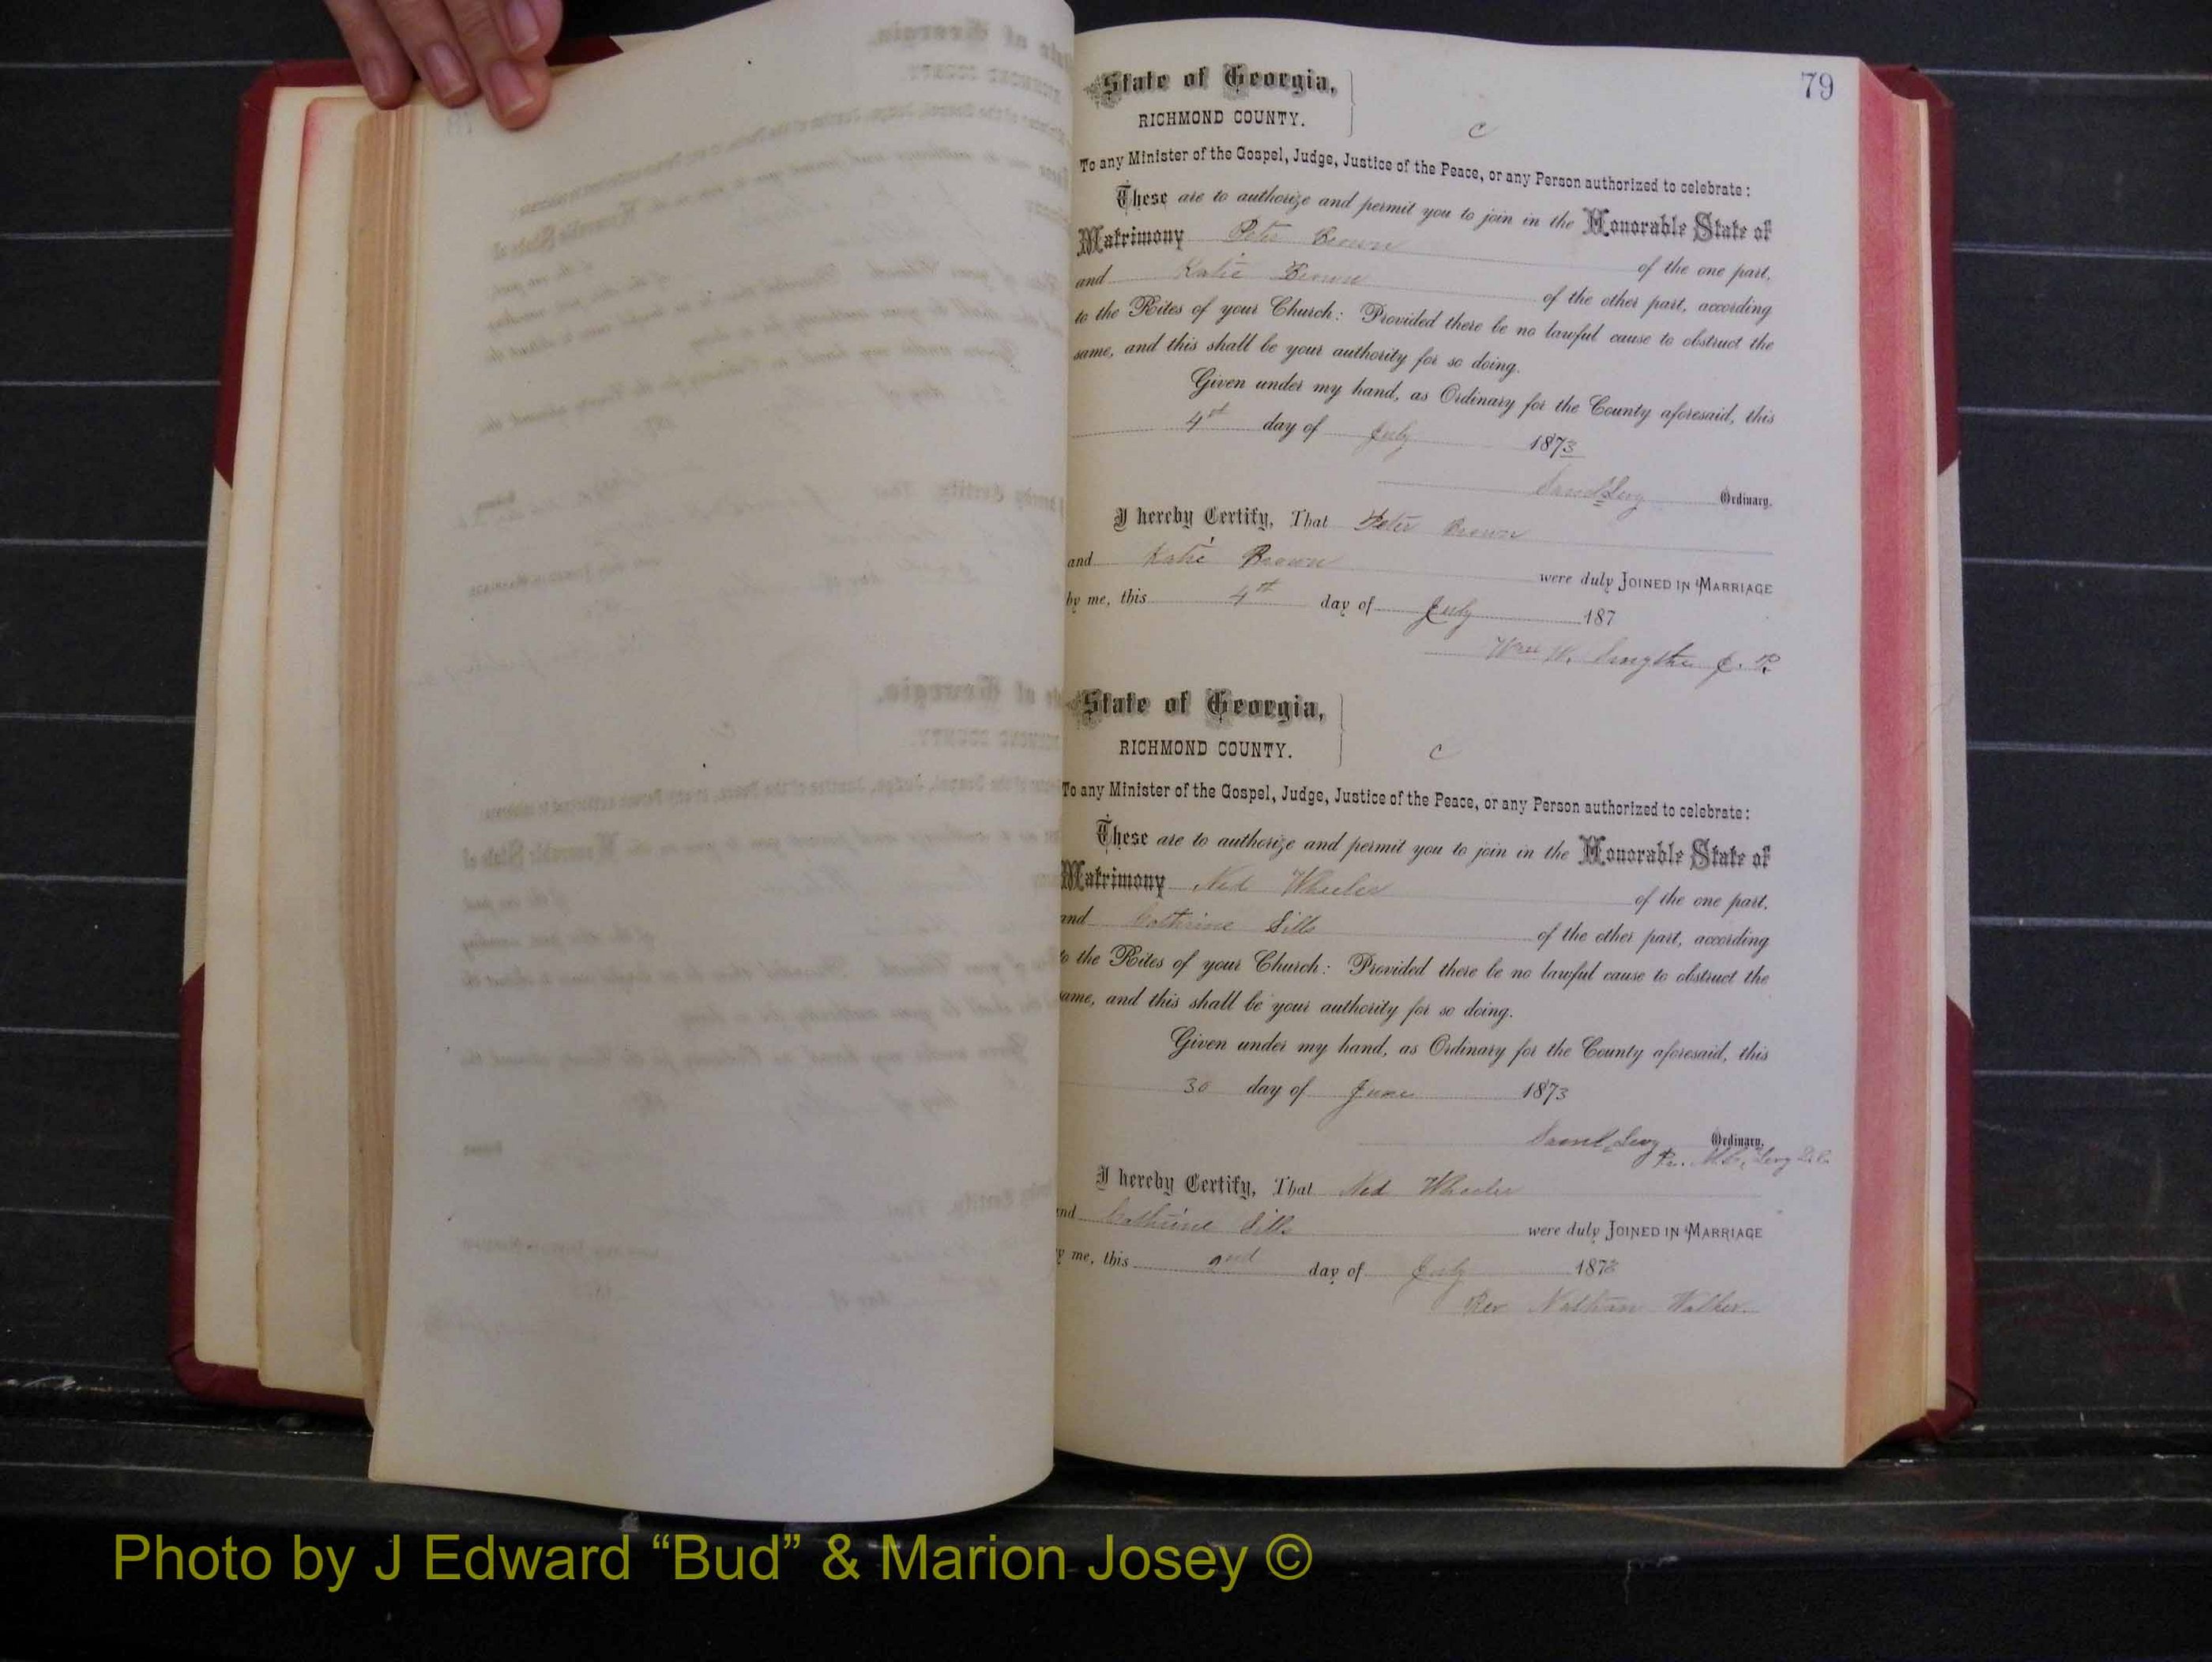 79
State of Georgia,
RICHMOND COUNTY.
C
To any Minister of the Gospel, Judge, Justice of the Peace, or any Person authorized to celebrate:
These are to authorize and permit you to join in the Honorable State of
Matrimony Peter Brown of the one part,
and Katie Brown of the other part, according
to the Rites of your Church: Provided there be no lawful cause to obstruct the
same, and this shall be your authority for so doing.
Given under my hand, as Ordinary for the County aforesaid, this
4th day of July 1873
Saml Levy Ordinary.
I hereby Certify, That Peter Brown
and Katie Brown were duly JOINED IN MARRIAGE
by me, this 4th day of July 187
Wm W. Smythe J. P.
State of Georgia,
RICHMOND COUNTY.
C
To any Minister of the Gospel, Judge, Justice of the Peace, or any Person authorized to celebrate:
These are to authorize and permit you to join in the Honorable State of
Matrimony Ned Wheeler of the one part,
and Cathrine Sills of the other part, according
to the Rites of your Church: Provided there be no lawful cause to obstruct the
same, and this shall be your authority for so doing.
Given under my hand, as Ordinary for the County aforesaid, this
30 day of June 1873
Saml Levy Ordinary.
Levy
I hereby Certify, That Ned Wheeler
and Cathrine Sills were duly JOINED IN MARRIAGE
by me, this 2nd day of July 1873
Rev Nathan Walker
Photo by J Edward “Bud” & Marion Josey ©